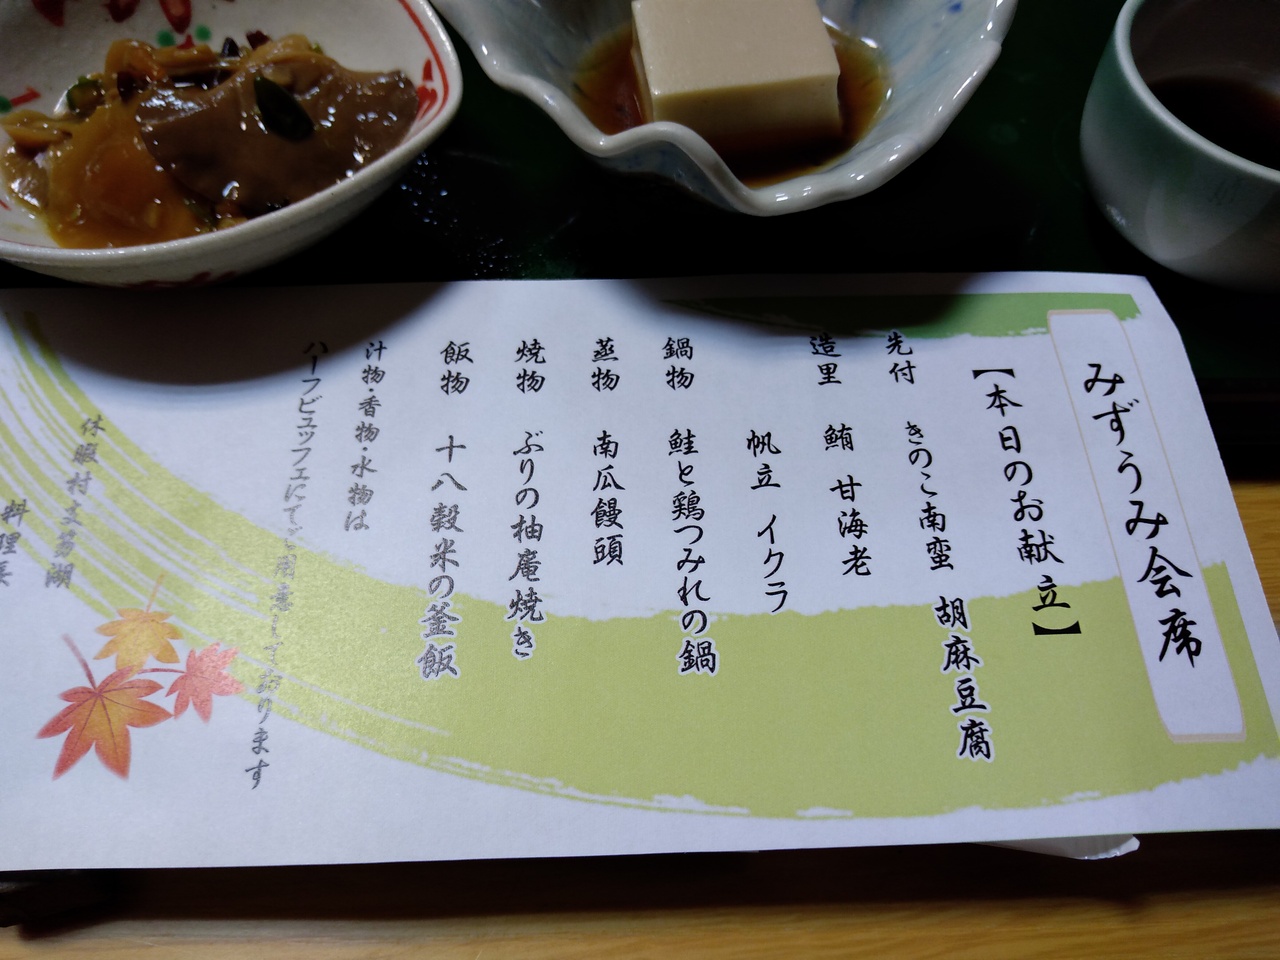 みずうみ会席
【本日のお献立】
先付 きのこ南蛮 胡麻豆腐
造里 鮪 甘海老
帆立 イクラ
鍋物 鮭と鶏つみれの鍋
蒸物 南瓜饅頭
焼物 ぶりの柚庵焼き
飯物 十八穀米の釜飯
汁物・香物・水物は
ハーフビュッフェにてご用意しております
休暇村支笏湖
料理長